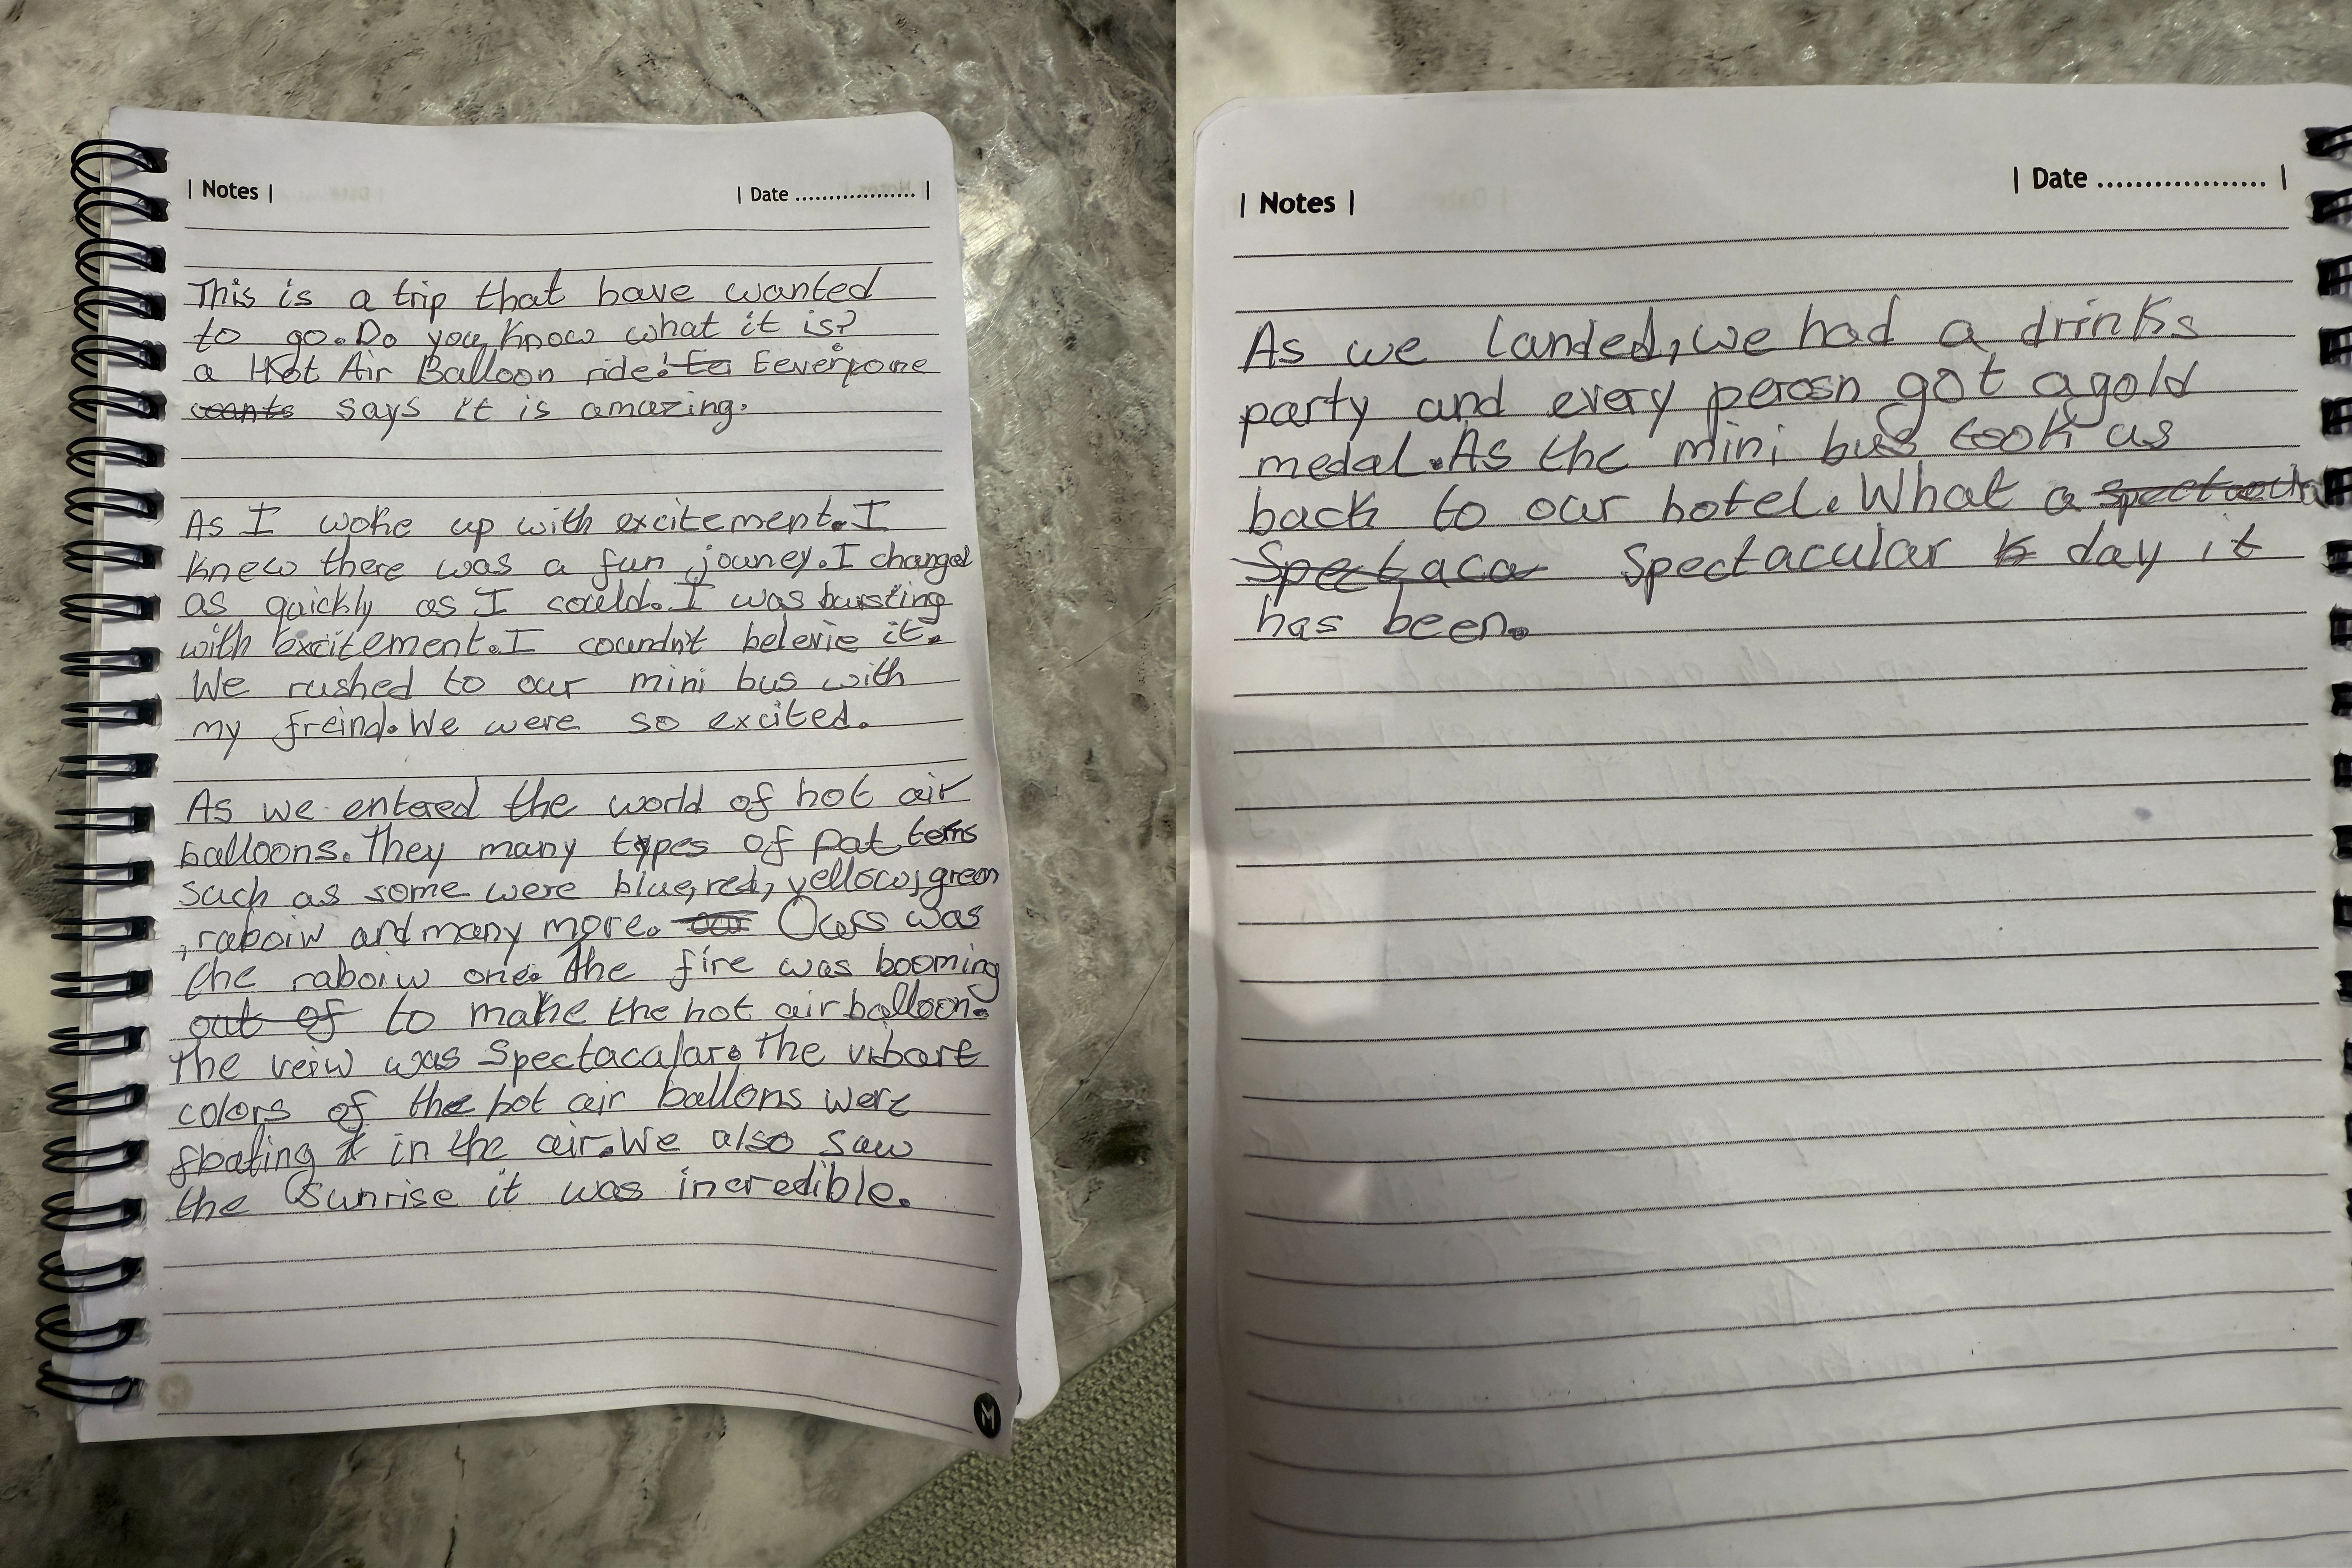 | Notes |
| Date ................... |
This is a trip that have wanted
to go. Do you know what it is?
a Hot Air Balloon ride! to Eeveryone
wants says it is amazing.
As I woke up with excitement. I
knew there was a fun jouney. I changed
as quickly as I could. I was bursting
with excitement. I coundn't belevie it.
We rushed to our mini bus with
my freind. We were so excited.
As we entered the world of hot air
balloons. They many types of pat terns
such as some were blue, red, yellow, green
, raboiw and many more. our Ours was
the raboiw one. The fire was booming
out of to make the hot air balloon.
The veiw was Spectacular. The vibart
colors of the hot air ballons were
floating in the air. We also saw
the Sunrise it was incredible.
M
| Notes |
| Date ................... |
As we landed, we had a drinks
party and every perosn got a gold
medal. As the mini bus took us
back to our hotel. What a
Spectaca Spectacular day it
has been.